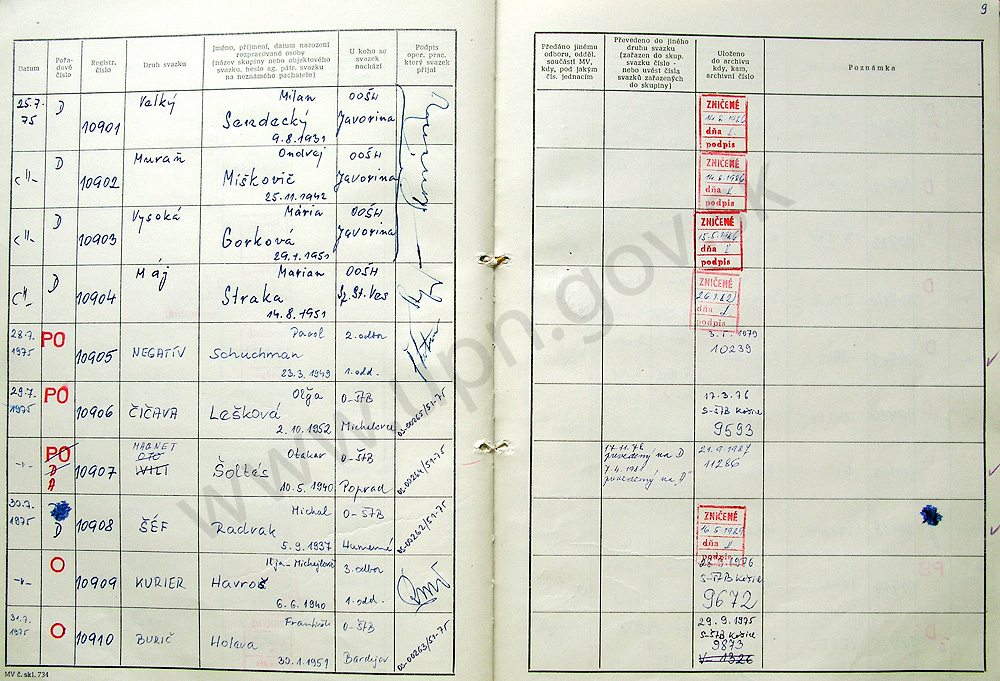 9
Datum
Pořa-
dové
číslo
Registr.
číslo
Druh svazku
Jméno, příjmení, datum narození
rozpracované osoby
(název skupiny nebo objektového
svazku, heslo ag. pátr. svazku
na neznámého pachatele)
U koho se
svazek
nachází
Podpis
oper. prac.
který svazek
přijal
Předáno jinému
odboru, odděl.
součásti MV,
kdy, pod jakým
čís. jednacím
Převedeno do jiného
druhu svazku
(zařazen do skup.
svazku číslo -
nebo uvést čísla
svazků zařazených
do skupiny)
Uloženo
do archivu
kdy, kam,
archivní číslo
Poznámka
25.7.
75
D
10901
Velký
Milan
Sendecký
9.8.1931
OOŠH
Javorina
ZNIČENÉ
dňa
podpis
-"-
D
10902
Muraň
Ondrej
Miškovič
25.11.1942
OOŠH
Javorina
ZNIČENÉ
14.8.1986
dňa
podpis
-"-
D
10903
Vysoká
Mária
Gorková
29.1.1951
OOŠH
Javorina
ZNIČENÉ
15.5.1986
dňa
podpis
-"-
D
10904
Máj
Marian
Straka
14.8.1951
OOŠH
Sp. St. Ves
ZNIČENÉ
dňa
podpis
28.7.
1975
PO
10905
NEGATÍV
Pavol
Schuchman
23.3.1949
2. odbor
1. odd.
10239
29.7.
1975
PO
10906
ČIČAVA
Oľga
Lešková
2.10.1952
O-ŠTB
Michalovce
OS-00265/51-75
17.3.76
S-ŠTB Košice
9593
-"-
PO
D
A
10907
MAGNET
OTO
VILI
Otakar
Šoltés
10.5.1940
O-ŠTB
Poprad
OS-00264/51-75
prevedený na D
prevedený na "A"
21.9.1987
11286
30.7.
1975
D
10908
ŠÉF
Michal
Radvak
5.9.1937
O-ŠTB
Humenné
OS-00262/51-75
ZNIČENÉ
16.5.1989
dňa
podpis
-"-
O
10909
KURIER
Iľja-Michajlovič
Havroš
6.6.1940
3. odbor
1. odd.
S-ŠTB Košice
9672
31.7.
1975
O
10910
BURIČ
František
Holova
30.1.1951
O-ŠTB
Bardejov
OS-00263/51-75
29.9.1975
S-ŠTB Košice
9873
V-1326
MV č. skl. 734
www.upn.gov.sk